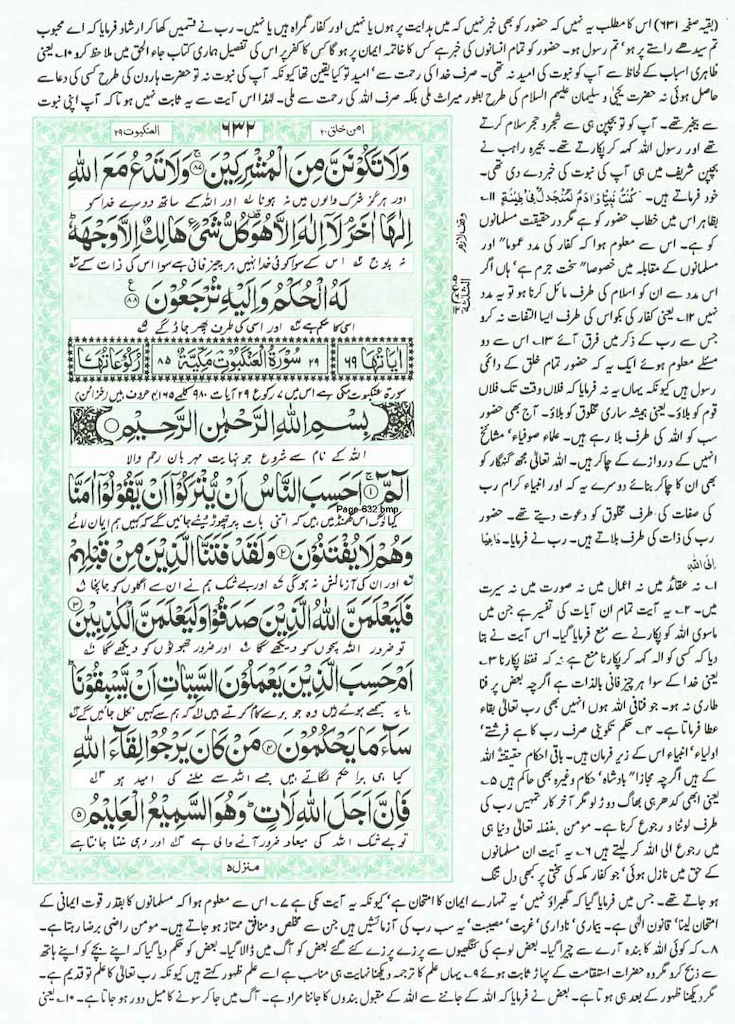 (بقیہ صفحہ ۶۳۱) اس کا مطلب یہ نہیں کہ حضور کو بھی خبر نہیں کہ میں ہدایت پر ہوں یا نہیں اور کفار گمراہ ہیں یا نہیں۔ رب نے قسمیں کھا کر ارشاد فرمایا کہ اے محبوب
تم سیدھے راستے پر ہو' تم رسول ہو۔ حضور کو تمام انسانوں کی خبر ہے کس کا خاتمہ ایمان پر ہو گا کس کا کفر پر اس کی تفصیل ہماری کتاب جاء الحق میں ملاحظ کرو ۱۰۔ یعنی
ظاہری اسباب کے لحاظ سے آپ کو نبوت کی امید نہ تھی۔ صرف خدا کی رحمت سے' امید تو کیا یقین تھا کیونکہ آپ کی نبوت نہ تو حضرت ہارون کی طرح کسی کی دعا سے
حاصل ہوئی نہ حضرت یحیٰی و سلیمان علیہم السلام کی طرح بطور میراث ملی بلکہ صرف اللہ کی رحمت سے ملی۔ لہٰذا اس آیت سے یہ ثابت نہیں ہوتا کہ آپ اپنی نبوت
سے بیخبر تھے۔ آپ کو تو بچپن ہی سے شجر و حجر سلام کرتے
تھے اور رسول اللہ کہہ کر پکارتے تھے۔ بحیرہ راہب نے
بچپن شریف میں ہی آپ کی نبوت کی خبر دے دی تھی۔
خود فرماتے ہیں۔ کُنْتُ نَبِیًّا وَاٰدَمُ لَمُنْجَدِلٌ فِیْ طِیْنَتِہٖ ۱۱۔
بظاہر اس میں خطاب حضور کو ہے مگر در حقیقت مسلمانوں
کو ہے۔ اس سے معلوم ہوا کہ کفار کی مدد عموما" اور
مسلمانوں کے مقابلہ میں خصوصا" سخت جرم ہے' ہاں اگر
اس مدد سے ان کو اسلام کی طرف مائل کرنا ہو تو یہ مدد
نہیں ۱۲۔ یعنی کفار کی بکواس کی طرف ایسا التفات نہ کرو
جس سے رب کے ذکر میں فرق آئے ۱۳۔ اس سے دو
مسئلے معلوم ہوئے ایک یہ کہ حضور تمام خلق کے دائمی
رسول ہیں کیونکہ یہاں یہ نہ فرمایا کہ فلاں وقت تک فلاں
قوم کو بلاؤ۔ یعنی ہمیشہ ساری مخلوق کو بلاؤ۔ آج بھی حضور
سب کو اللہ کی طرف بلا رہے ہیں۔ علماء صوفیاء' مشائخ
انہیں کے دروازے کے چاکر ہیں۔ اللہ تعالٰی مجھ گنہگار کو
بھی ان کا چاکر بنائے دوسرے یہ کہ اور انبیاء کرام رب
کی صفات کی طرف مخلوق کو دعوت دیتے تھے۔ حضور
رب کی ذات کی طرف بلاتے ہیں۔ رب نے فرمایا۔ دَاعِیًا
اِلَی اللہِ
۱۔ نہ عقائد میں نہ اعمال میں نہ صورت میں نہ سیرت
میں۔ ۲۔ یہ آیت تمام ان آیات کی تفسیر ہے جن میں
ماسوی اللہ کو پکارنے سے منع فرمایا گیا۔ اس آیت نے بتا
دیا کہ کسی کو الٰہ کہہ کر پکارنا منع ہے نہ کہ فقط پکارنا ۳۔
یعنی خدا کے سوا ہر چیز فانی بالذات ہے اگرچہ بعض پر فنا
طاری نہ ہو۔ جو فنافی اللہ ہوں انہیں بھی رب تعالٰی بقاء
عطا فرماتا ہے۔ ۴۔ حکم تکوینی صرف رب کا ہے فرشتے'
اولیاء' انبیاء اس کے زیر فرمان ہیں۔ باقی احکام حقیقتہً اللہ
کے ہیں اگرچہ مجازا" بادشاہ' حکام وغیرہ بھی حاکم ہیں ۵۔
یعنی ابھی کدھر ہی بھاگ دوڑ لو مگر آخر کار تمہیں رب کی
طرف لوٹنا و رجوع کرنا ہے۔ مومن بفضلہ تعالٰی دنیا ہی
میں رجوع الی اللہ کر لیتے ہیں ۶۔ یہ آیت ان مسلمانوں
کے حق میں نازل ہوئی' جو کفار مکہ کی سختی پر بھی دل تنگ
امن خلق ۲۰
۶۳۲
العنکبوت ۲۹
وَلَا تَكُوْنَنَّ مِنَ الْمُشْرِكِيْنَ ۚ﴿۸۷﴾ وَلَا تَدْعُ مَعَ اللّٰهِ
اور ہرگز شرک والوں میں نہ ہونا اور اللہ کے ساتھ دوسرے خدا کو
اِلٰهًا اٰخَرَ ۘ لَاۤ اِلٰهَ اِلَّا هُوَ ۫ كُلُّ شَیْءٍ هَالِكٌ اِلَّا وَجْهَهٗ ؕ
نہ پوج اس کے سوا کوئی خدا نہیں ہر چیز فانی ہے سوا اس کی ذات کے
لَهُ الْحُكْمُ وَاِلَيْهِ تُرْجَعُوْنَ ﴿۸۸﴾
اسی کا حکم ہے اور اسی کی طرف پھر جاؤ گے
وقف لازم
اٰیَاتُهَا ۶۹
۲۹ سُوْرَةُ الْعَنْكَبُوْتِ مَكِّيَّةٌ ۸۵
رُكُوْعَاتُهَا ۷
سورۃ عنکبوت مکی ہے اس میں ۷ رکوع ۶۹ آیات ۹۸۰ کلمے ۴۱۶۵ حروف ہیں (خزائن)
بِسْمِ اللّٰهِ الرَّحْمٰنِ الرَّحِيْمِ
اللہ کے نام سے شروع جو نہایت مہربان رحم والا
الٓمّٓ ﴿۱﴾ اَحَسِبَ النَّاسُ اَنْ يُّتْرَكُوْۤا اَنْ يَّقُوْلُوْۤا اٰمَنَّا
Page 632.bmp
کیا لوگ اس گھمنڈ میں ہیں کہ اتنی بات پر چھوڑ دیئے جائیں گے کہ کہیں ہم ایمان لائے
وَهُمْ لَا يُفْتَنُوْنَ ﴿۲﴾ وَلَقَدْ فَتَنَّا الَّذِيْنَ مِنْ قَبْلِهِمْ
اور ان کی آزمائش نہ ہو گی اور بے شک ہم نے ان سے اگلوں کو جانچا
فَلَيَعْلَمَنَّ اللّٰهُ الَّذِيْنَ صَدَقُوْا وَلَيَعْلَمَنَّ الْكٰذِبِيْنَ ﴿۳﴾
تو ضرور اللہ سچوں کو دیکھے گا اور ضرور جھوٹوں کو دیکھے گا
اَمْ حَسِبَ الَّذِيْنَ يَعْمَلُوْنَ السَّيِّاٰتِ اَنْ يَّسْبِقُوْنَا ؕ
یا یہ سمجھے ہوئے ہیں وہ جو برے کام کرتے ہیں کہ ہم سے کہیں نکل جائیں گے
سَآءَ مَا يَحْكُمُوْنَ ﴿۴﴾ مَنْ كَانَ يَرْجُوْا لِقَآءَ اللّٰهِ
کیا ہی برا حکم لگاتے ہیں جسے اللہ سے ملنے کی امید ہو
فَاِنَّ اَجَلَ اللّٰهِ لَاٰتٍ ؕ وَهُوَ السَّمِيْعُ الْعَلِيْمُ ﴿۵﴾
تو بے شک اللہ کی میعاد ضرور آنے والی ہے اور وہی سنتا جانتا ہے
منزل ۵
ہو جاتے تھے۔ جس میں فرمایا گیا کہ گھبراؤ نہیں' یہ تمہارے ایمان کا امتحان ہے' کیونکہ یہ آیت مکی ہے ۷۔ اس سے معلوم ہوا کہ مسلمانوں کا بقدر قوت ایمانی کے
امتحان لینا' قانون الٰہی ہے۔ بیماری' ناداری' غربت' مصیبت' یہ سب رب کی آزمائشیں ہیں جن سے مخلص و منافق ممتاز ہو جاتے ہیں۔ مومن راضی برضا رہتا ہے۔
۸۔ کہ کوئی اللہ کا بندہ آرے سے چیرا گیا۔ بعض لوہے کی کنگھیوں سے پرزے پرزے کئے گئے بعض کو آگ میں ڈالا گیا۔ بعض کو حکم دیا گیا کہ اپنے بچے کو اپنے ہاتھ
سے ذبح کرو مگر وہ حضرات استقامت کے پہاڑ ثابت ہوئے ۹۔ یہاں علم کا ترجمہ دیکھنا نہایت ہی مناسب ہے اسے علم ظہور کہتے ہیں کیونکہ رب تعالٰی کا علم تو قدیم ہے۔
مگر دیکھنا ظہور کے بعد ہی ہوتا ہے۔ بعض نے فرمایا کہ اللہ کے جاننے سے اللہ کے مقبول بندوں کا جاننا مراد ہے۔ آگ میں جا کر سونے کا میل دور ہو جاتا ہے۔ ۱۰۔ یعنی